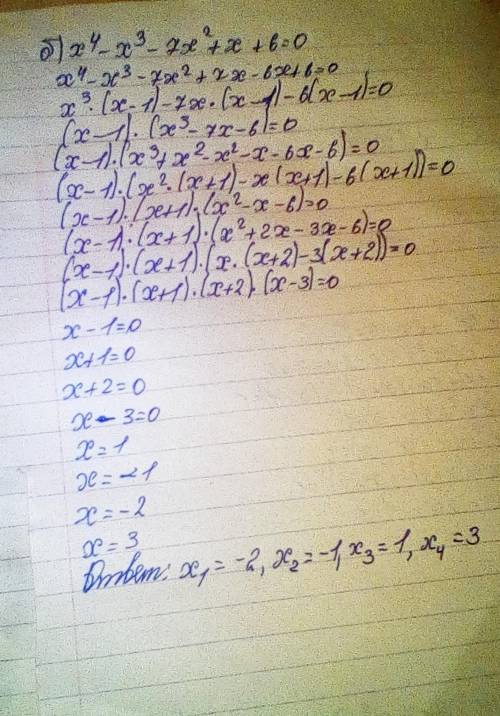 б) x⁴ - x³ - 7x² + x + 6 = 0
x⁴ - x³ - 7x² + 7x - 6x + 6 = 0
x³ · (x - 1) - 7x · (x - 1) - 6(x - 1) = 0
(x - 1) · (x³ - 7x - 6) = 0
(x - 1) · (x³ + x² - x² - x - 6x - 6) = 0
(x - 1) · (x² · (x + 1) - x(x + 1) - 6(x + 1)) = 0
(x - 1) · (x + 1) · (x² - x - 6) = 0
(x - 1) · (x + 1) · (x² + 2x - 3x - 6) = 0
(x - 1) · (x + 1) · (x · (x + 2) - 3(x + 2)) = 0
(x - 1) · (x + 1) · (x + 2) · (x - 3) = 0
x - 1 = 0
x + 1 = 0
x + 2 = 0
x - 3 = 0
x = 1
x = -1
x = -2
x = 3
Ответ: x₁ = -2, x₂ = -1, x₃ = 1, x₄ = 3